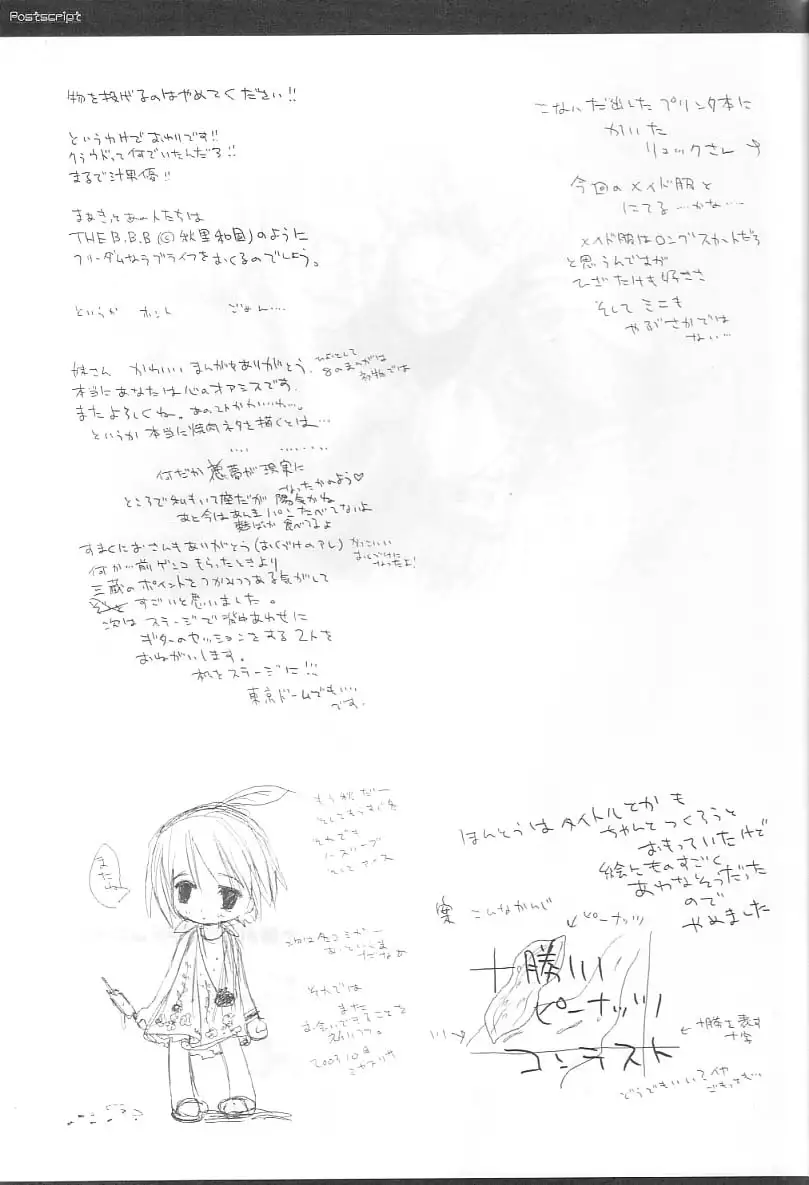 Postscript
物を投げるのはやめてください!!
というわけでおわりです!!
クラウドって何でいたんだろ!!
まるで汁果優!!
まぁきっとあの人たちは
THE B.B.B (© 秋里和国)のように
フリーダムなラブライフをおくるのでしょう。
というか ホント ごめん…
妹さん かわいいまんがをありがとう。
本当にあなたは心のオアシスです。
またよろしくね。
というか本当に焼肉ネタを描くとは…
何だか悪夢が現実に
なったかのよう♡
ところで私もいて座だが陽気かね
あと今はあんまパンたべてないよ
麺ばか食べてるよ
すまくにおさんもありがとう(おくづけのアレ)
かっこいい
おくづけに
なったよ!
何か…前ゲンコもらったときより
三蔵のポイントをつかみつつある気がして
すごいと思いました。
次はステージで背中あわせに
ギターのセッションをする2人を
おねがいします。
机をステージに!!!
東京ドームでも…
です。
こないだ出したプリンタ本に
かいた
リュックさん
今回のメイド服と
にてる…かな…
メイド服はロングスカートだろ
と思うんですが
ひざたけも好きさ
そしてミニも
やぶさかでは
ない…
またね
もう秋だー
それでも
ノースリーブ
そしてアイス
それでは
また
お会いできることを
祈りつつ。
2003.10月
ほんとうはタイトルとかも
ちゃんとつくろうと
おもっていたけど
絵にものすごく
あわなそうだった
ので
やめました
案 こんなかんじ
ピーナッツ
十勝川
ピーナッツ
コンテスト
川→
←十勝を表す
十字
どうでもいいていや